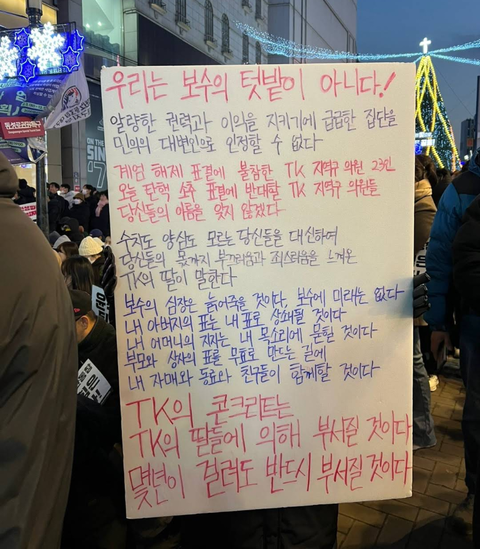 우리는 보수의 텃밭이 아니다!
알량한 권력과 이익을 지키기에 급급한 집단을
민의의 대변인으로 인정할 수 없다
계엄 해제 표결에 불참한 TK 지역구 의원 23인
오늘 탄핵 소추 표결에 반대할 TK 지역구 의원들
당신들의 이름을 잊지 않겠다
수치도 양심도 모르는 당신들을 대신하여
당신들의 몫까지 부끄러움과 죄스러움을 느껴온
TK의 딸이 말한다
보수의 심장은 늙어죽을 것이다. 보수에 미래는 없다
내 아버지의 표는 내 표로 상쇄될 것이다
내 어머니의 지지는 내 목소리에 묻힐 것이다
부모와 상사의 표를 무효로 만드는 길에
내 자매와 동료와 친구들이 함께할 것이다
TK의 콘크리트는
TK의 딸들에 의해 부서질 것이다
몇년이 걸려도 반드시 부서질 것이다
ON THE
SINCE